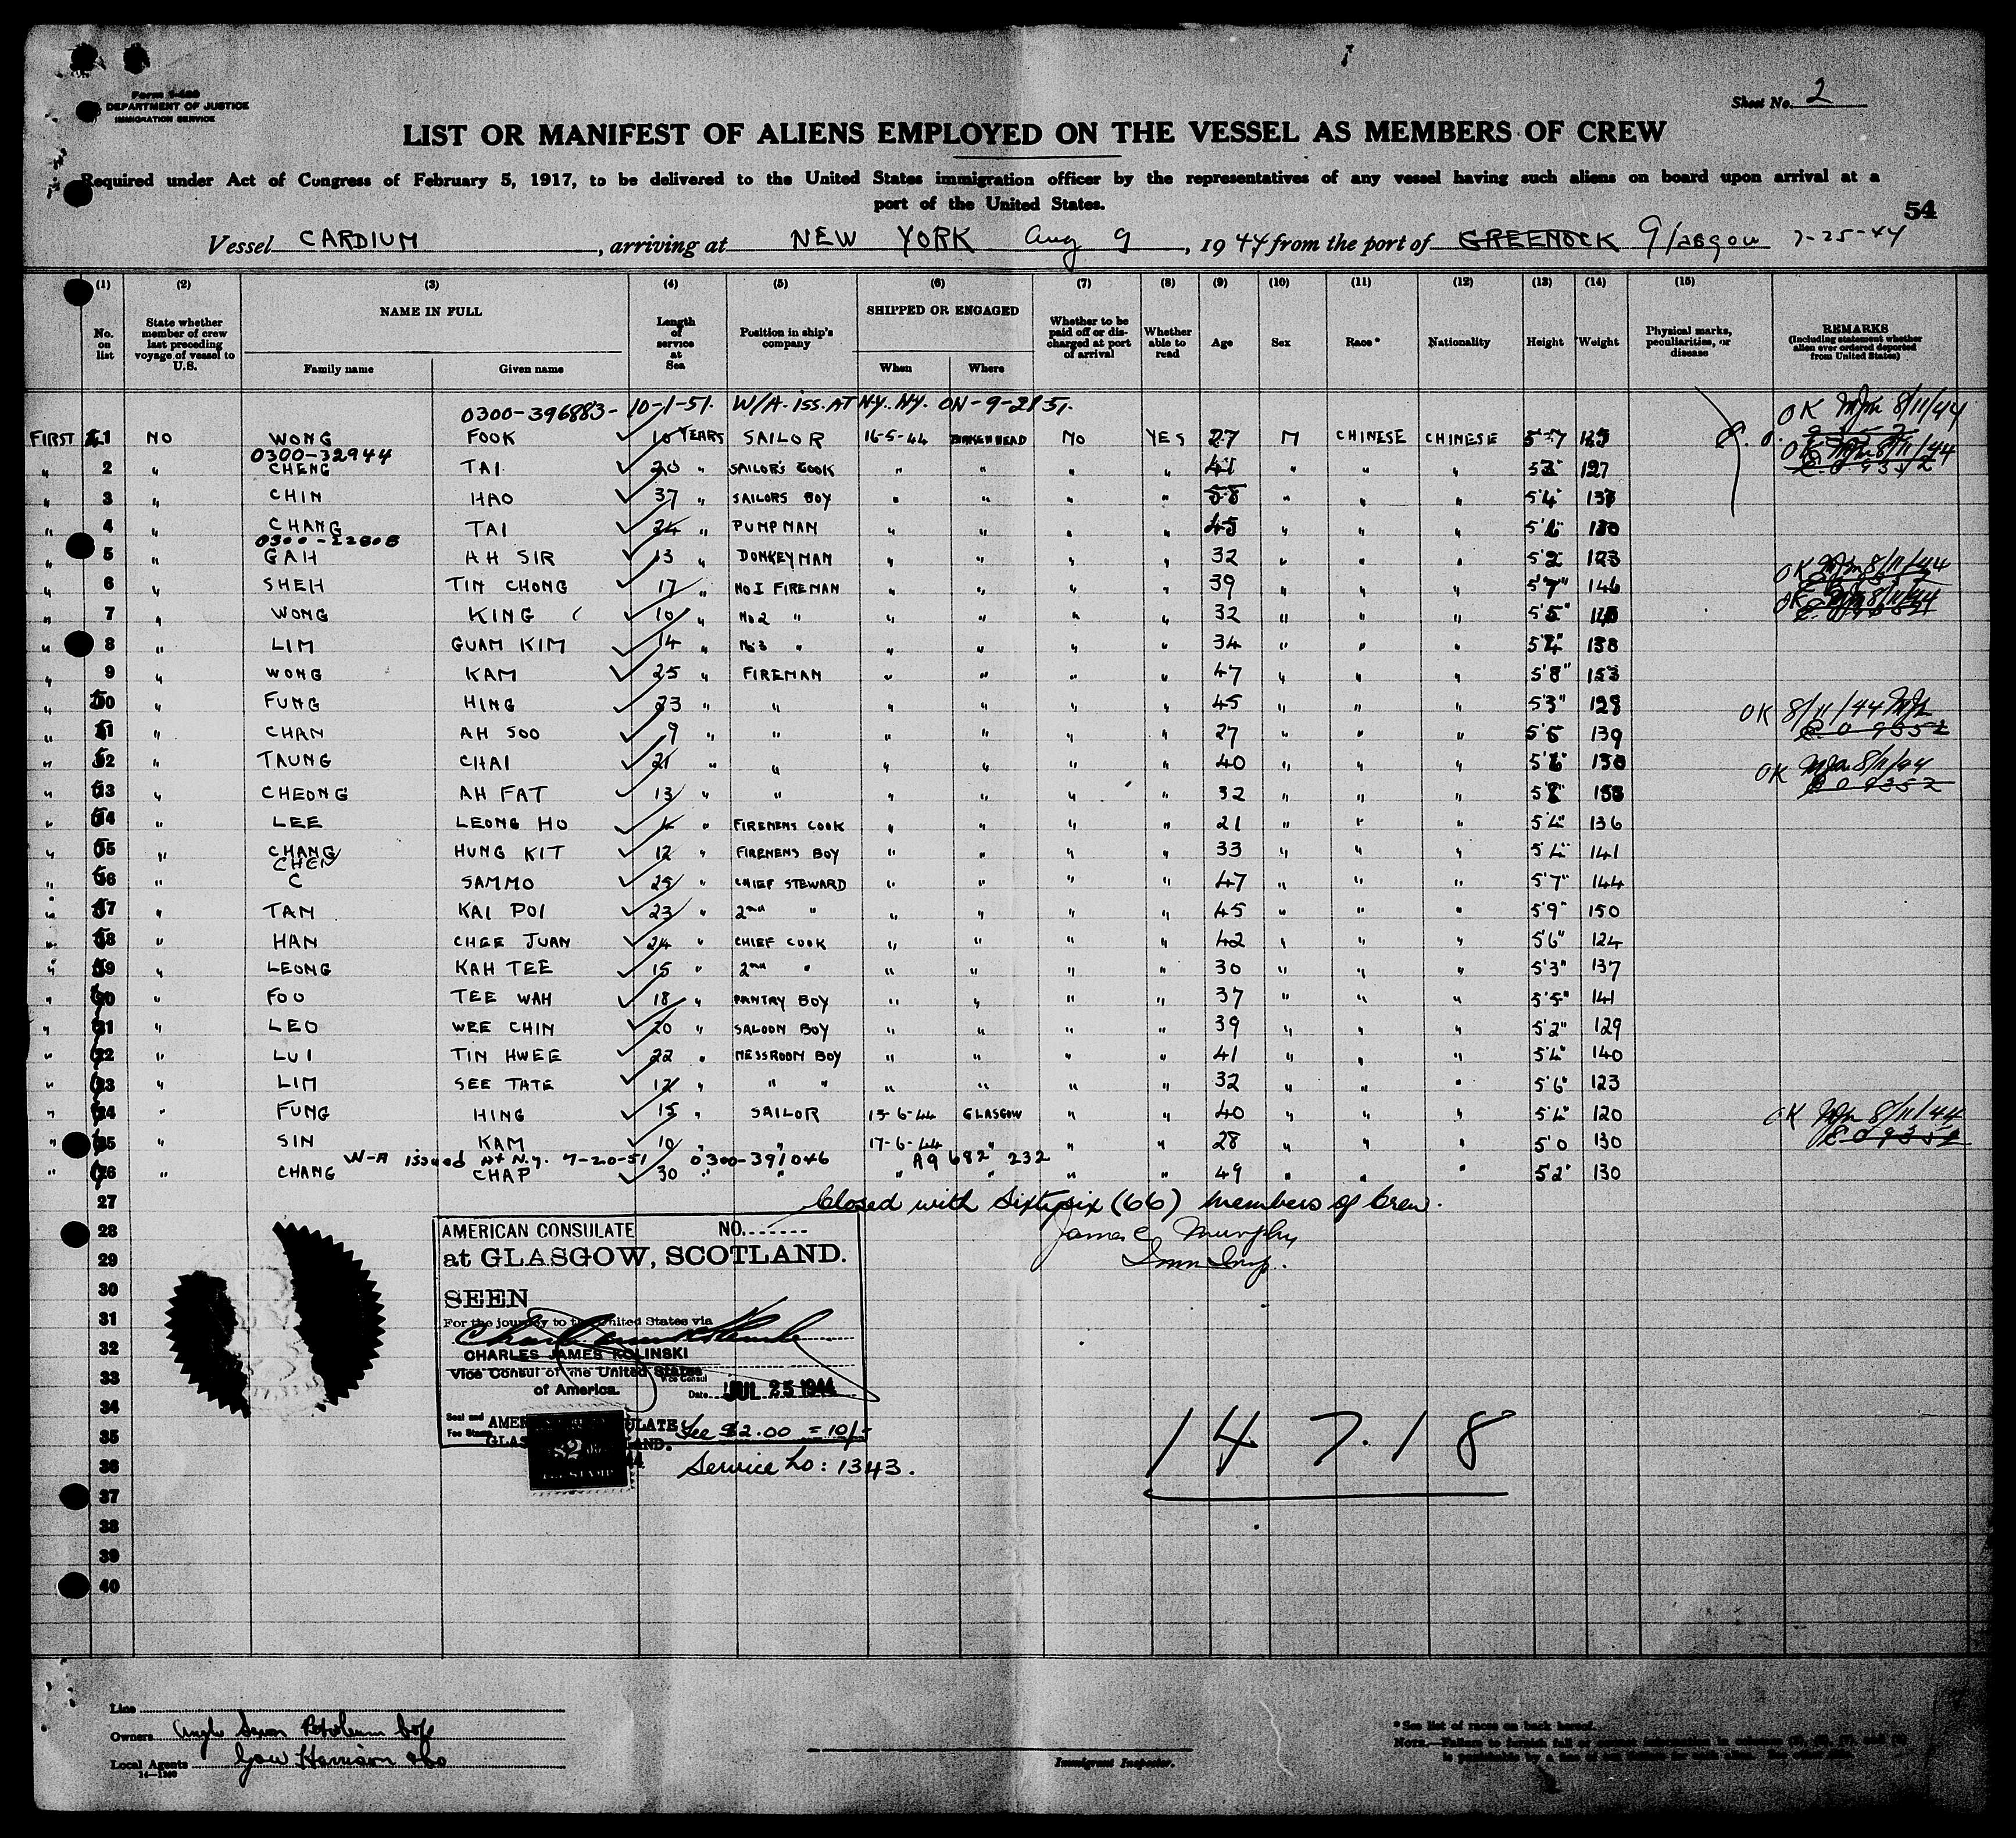 Form I-480
DEPARTMENT OF JUSTICE
IMMIGRATION SERVICE
Sheet No. 2
LIST OR MANIFEST OF ALIENS EMPLOYED ON THE VESSEL AS MEMBERS OF CREW
Required under Act of Congress of February 5, 1917, to be delivered to the United States immigration officer by the representatives of any vessel having such aliens on board upon arrival at a
port of the United States.
54
Vessel CARDIUM, arriving at NEW YORK Aug 9, 1944 from the port of GREENOCK Glasgow 7-25-44
(1) (2) (3) (4) (5) (6) (7) (8) (9) (10) (11) (12) (13) (14) (15)
No. on list
State whether member of crew last preceding voyage of vessel to U.S.
NAME IN FULL
Family name Given name
Length of service at Sea
Position in ship's company
SHIPPED OR ENGAGED
When Where
Whether to be paid off or discharged at port of arrival
Whether able to read
Age Sex Race* Nationality Height Weight
Physical marks, peculiarities, or disease
REMARKS
(Including statement whether alien ever ordered deported from United States)
0300-396883- 10-1-51. W/A. ISS. AT N.Y. N.Y. ON-9-21 51.
OK 8/11/44
FIRST 1 NO WONG FOOK 10 YEARS SAILOR 16-5-44 BIRKENHEAD NO YES 27 M CHINESE CHINESE 5-7 125
0300-32944
OK 8/11/44
" 2 " CHENG TAI 20 " SAILOR'S COOK " " " " 41 " " " 127
" 3 " CHIN HAO 37 " SAILORS BOY " " " " 58 " " " 5'4"
" 4 " CHANG TAI 24 " PUMPMAN " " " " 45 " " " 130
" 5 " GAH AH SIR 13 " DONKEYMAN " " " " 32 " " " 5'2 123
OK 8/11/44
" 6 " SHEH TIN CHONG 17 " NO I FIREMAN " " " " 39 " " " 5'7" 146
OK 8/11/44
" 7 " WONG KING 10 " No 2 " " " " " 32 " " " 5'5"
" 8 " LIM GUAM KIM 14 " No 3 " " " " " 34 " " " 138
" 9 " WONG KAM 25 " FIREMAN " " " " 47 " " " 5'8" 153
" 10 " FUNG HING 23 " " " " " " 45 " " " 5'3" 128
OK 8/11/44
" 11 " CHAN AH SOO 9 " " " " " " 27 " " " 139
" 12 " TAUNG CHAI 21 " " " " " " 40 " " "
OK 8/11/44
" 13 " CHEONG AH FAT 13 " " " " " " 32 " " "
" 14 " LEE LEONG HO 4 " FIREMENS COOK " " " " 21 " " " 5'4" 136
" 15 " CHANG HUNG KIT 12 " FIREMENS BOY " " " " 33 " " " 5'4" 141
CHEN
" 16 " C SAMMO 25 " CHIEF STEWARD " " " " 47 " " " 5'7" 144
" 17 " TAN KAI POI 23 " 2nd " " " " " 45 " " " 5'9" 150
" 18 " HAN CHEE JUAN 24 " CHIEF COOK " " " " 42 " " " 5'6" 124
" 19 " LEONG KAH TEE 15 " 2nd " " " " " 30 " " " 5'3" 137
" 20 " FOO TEE WAH 18 " PANTRY BOY " " " " 37 " " " 5'5" 141
" 21 " LEO WEE CHIN 20 " SALOON BOY " " " " 39 " " " 5'2" 129
" 22 " LUI TIN HWEE 22 " MESSROOM BOY " " " " 41 " " " 5'4" 140
" 23 " LIM SEE TATE 12 " " " " " " " 32 " " " 5'6" 123
" 24 " FUNG HING 15 " SAILOR 15-6-44 GLASGOW " " 40 " " " 5'4" 120
OK 8/11/44
" 25 " SIN KAM 10 " " 17-6-44 " " " 28 " " " 5'0 130
W-A issued at N.Y. 7-20-51 0300-391046 A9 682 232
" 26 " CHANG CHAP 30 " " " " " " 49 " " " 5'2" 130
27
Closed with Sixtysix (66) members of Crew.
28
James C. Murphy
29
Imm Insp.
30
31
32
33
34
35
36
37
38
39
40
AMERICAN CONSULATE NO.
at GLASGOW, SCOTLAND.
SEEN
For the journey to the United States via
CHARLES JAMES KOLINSKI
Vice Consul of the United States
of America.
Vice Consul
Date JUL 25 1944
Seal and
Fee Stamp
Fee $2.00 = 10/-
Service No: 1343.
14 7.18
Line
Owners Anglo Saxon Petroleum Co/
Local Agents Gow Harrison &Co
Immigrant Inspector.
*See list of races on back hereof.